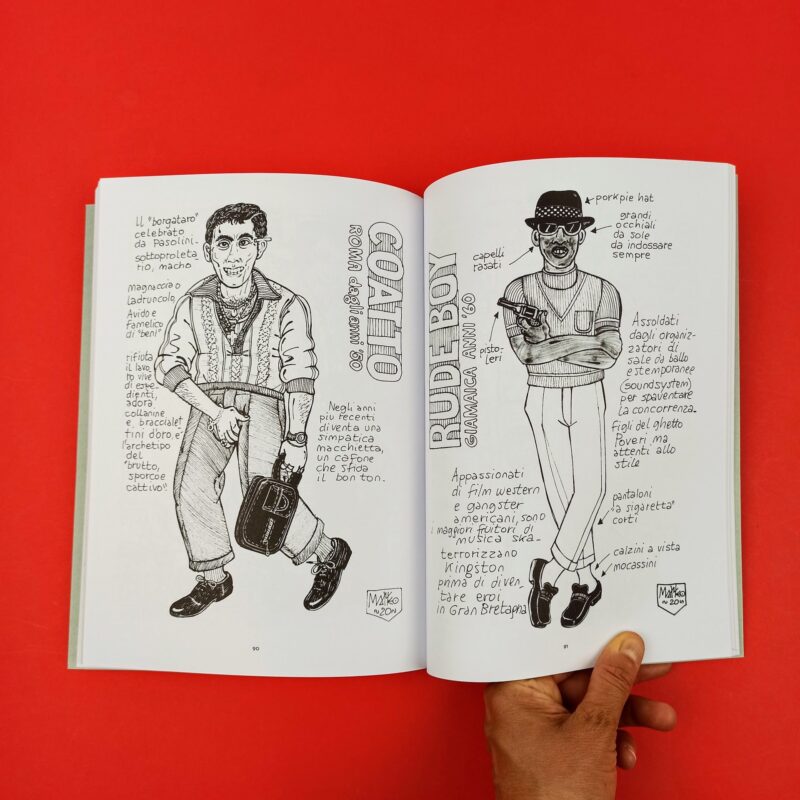 Il "borgataro"
celebrato
da Pasolini-
sottoproleta
rio, macho
magnaccia o
ladruncolo,
Avido e
famelico
di "beni"
rifiuta
il lavo_
ro vive
di espe_
dienti,
adora
collanine
e, bracciale_
tini d'oro, e'
l'archetipo
del
"brutto,
sporco e
cattivo"!
COATTO
ROMA dagli anni '50
Negli anni
piu recenti
diventa una
simpatica
macchietta,
un cafone
che sfida
il bon ton.
MaNko
20
90
RUDE BOY
GIAMAICA ANNI '60
porkpie hat
grandi
occhiali
da sole
da indossare
sempre
capelli
rasati
pisto_
leri
Assoldati
dagli organiz-
zatori di
sale da ballo
estemporanee
(soundsystem)
per spaventare
la concorrenza_
figli del ghetto
Poveri ma
attenti allo
stile
Appassionati
di film western
e gangster
americani, sono
i maggiori fruitori di
musica ska_
terrorizzano
Kingston
prima di diven_
tare eroi
in Gran Bretagna
pantaloni
"a sigaretta"
corti
calzini a vista
mocassini
MaNko
20
91